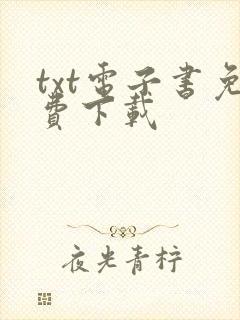 txt電子書免
費下載
夜光青柠